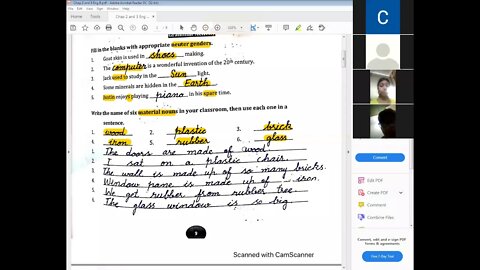 Chap 2 and 3 Eng B.pdf - Adobe Acrobat Reader DC (32-bit)
Fill in the blanks with appropriate neuter genders.
1. Goat skin is used in shoes making.
2. The computer is a wonderful invention of the 20th century.
3. Jack used to study in the Sun light.
4. Some minerals are hidden in the Earth.
5. Justin enjoys playing piano in his spare time.
Write the name of six material nouns in your classroom, then use each one in a
sentence.
1. wood 2. plastic 3. brick
4. iron 5. rubber 6. glass
1. The doors are made of wood.
2. I sat on a plastic chair.
3. The wall is made up of so many bricks.
4. Window pane is made up of iron.
5. We get rubber from rubber tree
6. The glass window is so big
9
Scanned with CamScanner
C
Convert
Edit PDF
Create PDF
Comment
Combine Files
Convert, edit and e-sign PDF
forms & agreements
Free 7-Day Trial